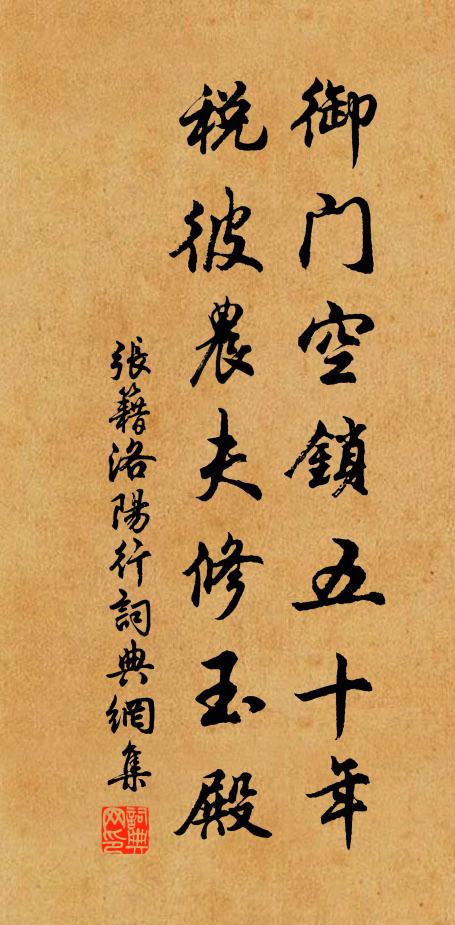 御門空鎖五十年
税彼農夫修玉殿
張籍洛陽行詞典網集
詞典网印